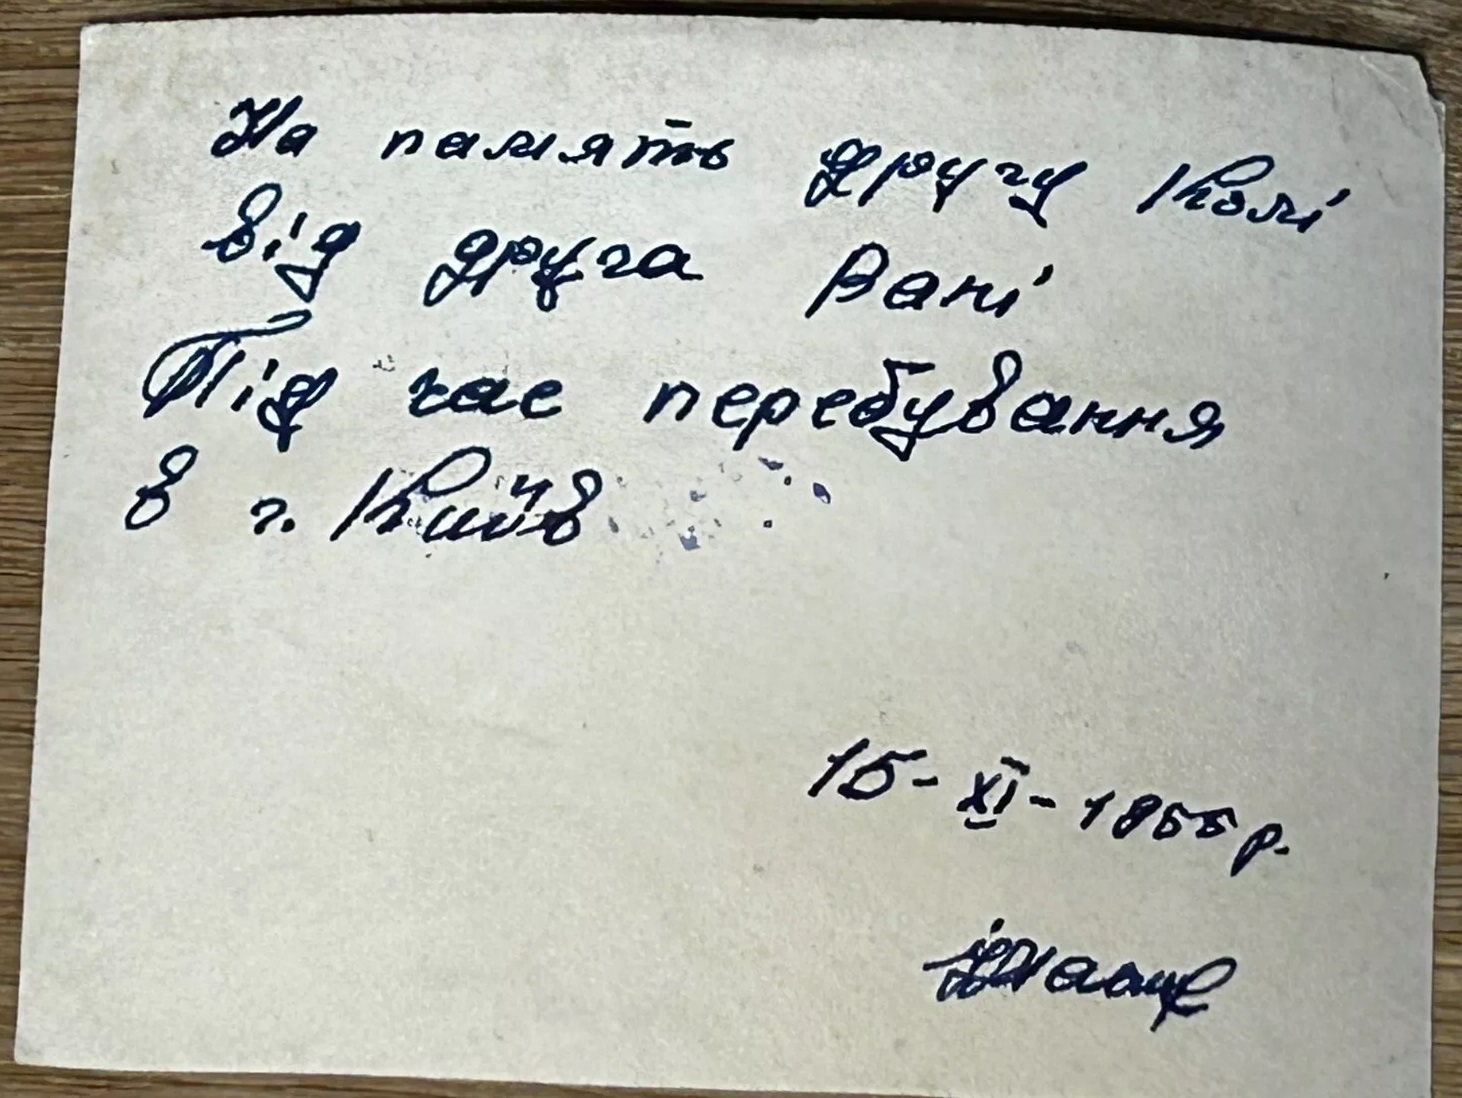 На память другу Колі
від друга Вані
Під час перебування
в г. Київ
15-XI-1955 р.